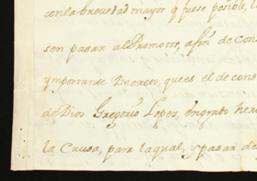 con la brevedad mayor q fuese posible, l
son pasar al Remoto, a fin de Con
ymportante Decreto, que es el de cons
de Dios Gregorio Lopez,
la Causa, para la qual, y pasar de